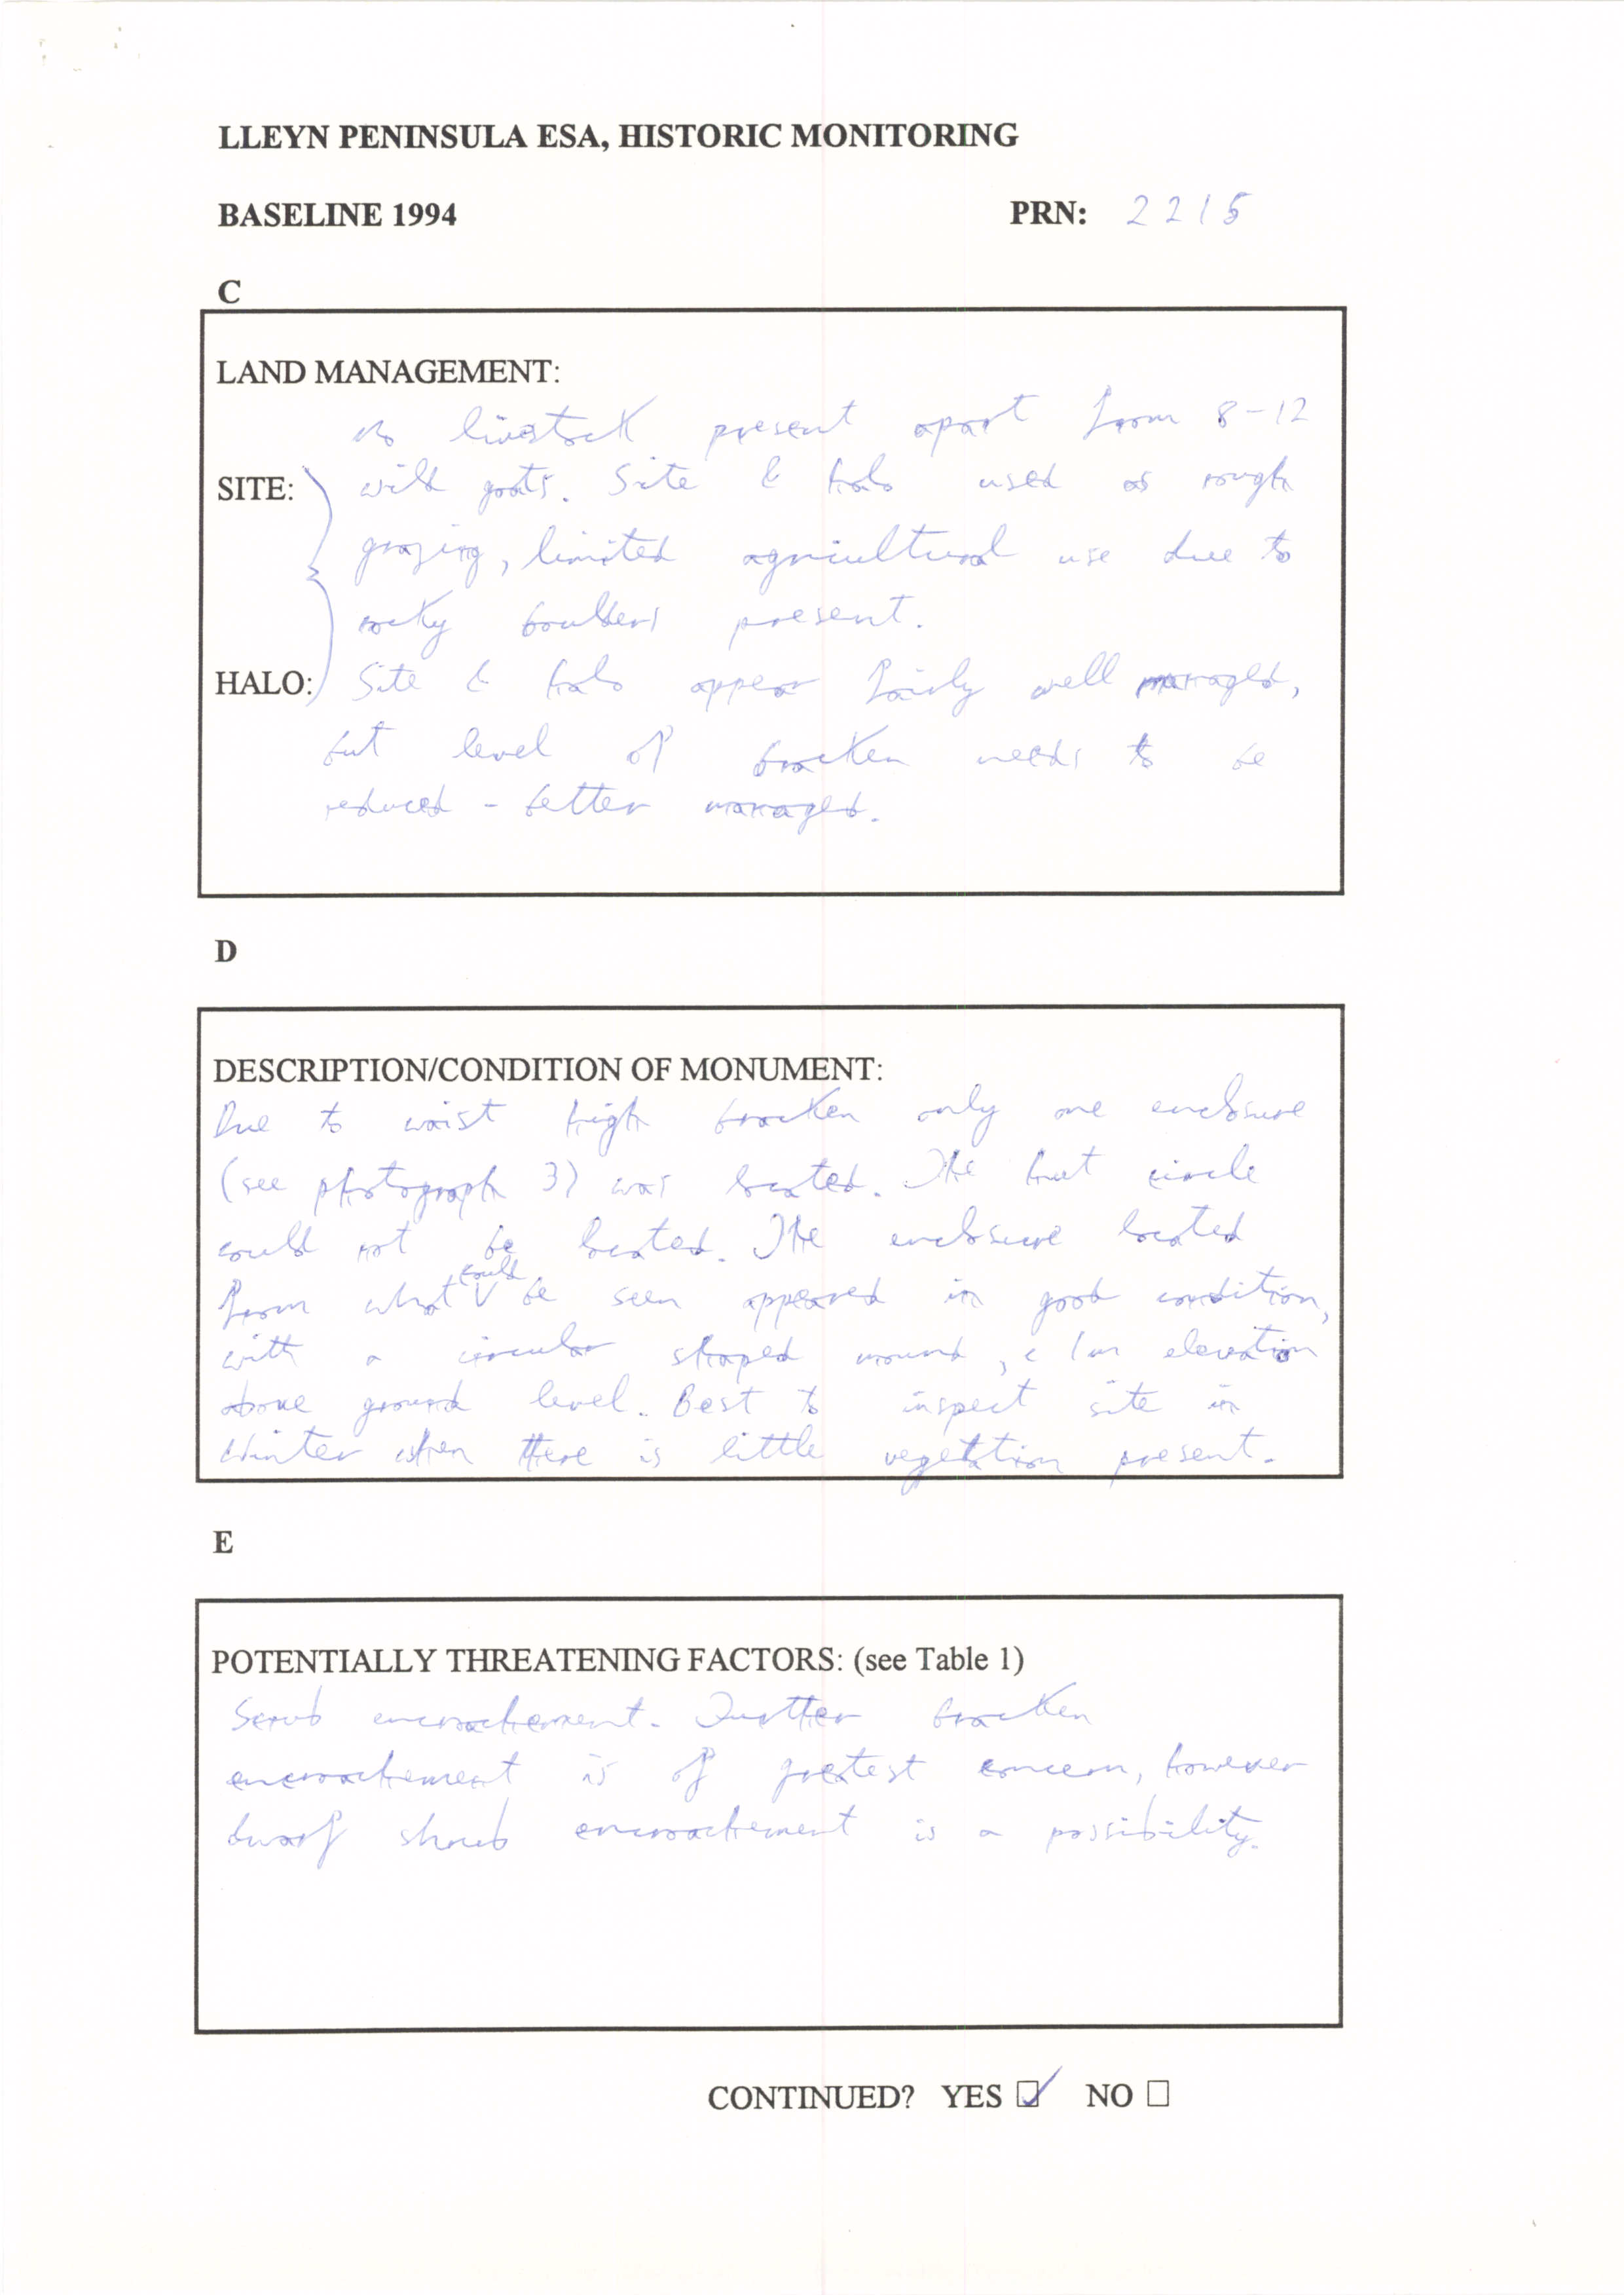 LLEYN PENINSULA ESA, HISTORIC MONITORING
BASELINE 1994 PRN: 2215
C
LAND MANAGEMENT:
No livestock present apart from 8-12
SITE: wild goats. Site & halo used as rough
grazing, limited agricultural use due to
rocky boulders present.
HALO: Site & halo appear fairly well managed,
but level of bracken needs to be
reduced - better managed.
D
DESCRIPTION/CONDITION OF MONUMENT:
Due to waist high bracken only one enclosure
(see photograph 3) was located. The hut circle
could not be located. The enclosure located
from what could be seen appeared in good condition,
with a circular shaped mound, c 1m elevation
above ground level. Best to inspect site in
Winter when there is little vegetation present.
E
POTENTIALLY THREATENING FACTORS: (see Table 1)
Scrub encroachement. Further bracken
encroachement is of greatest concern, however
dwarf shrub encroachement is a possibility.
CONTINUED? YES ☑ NO ☐